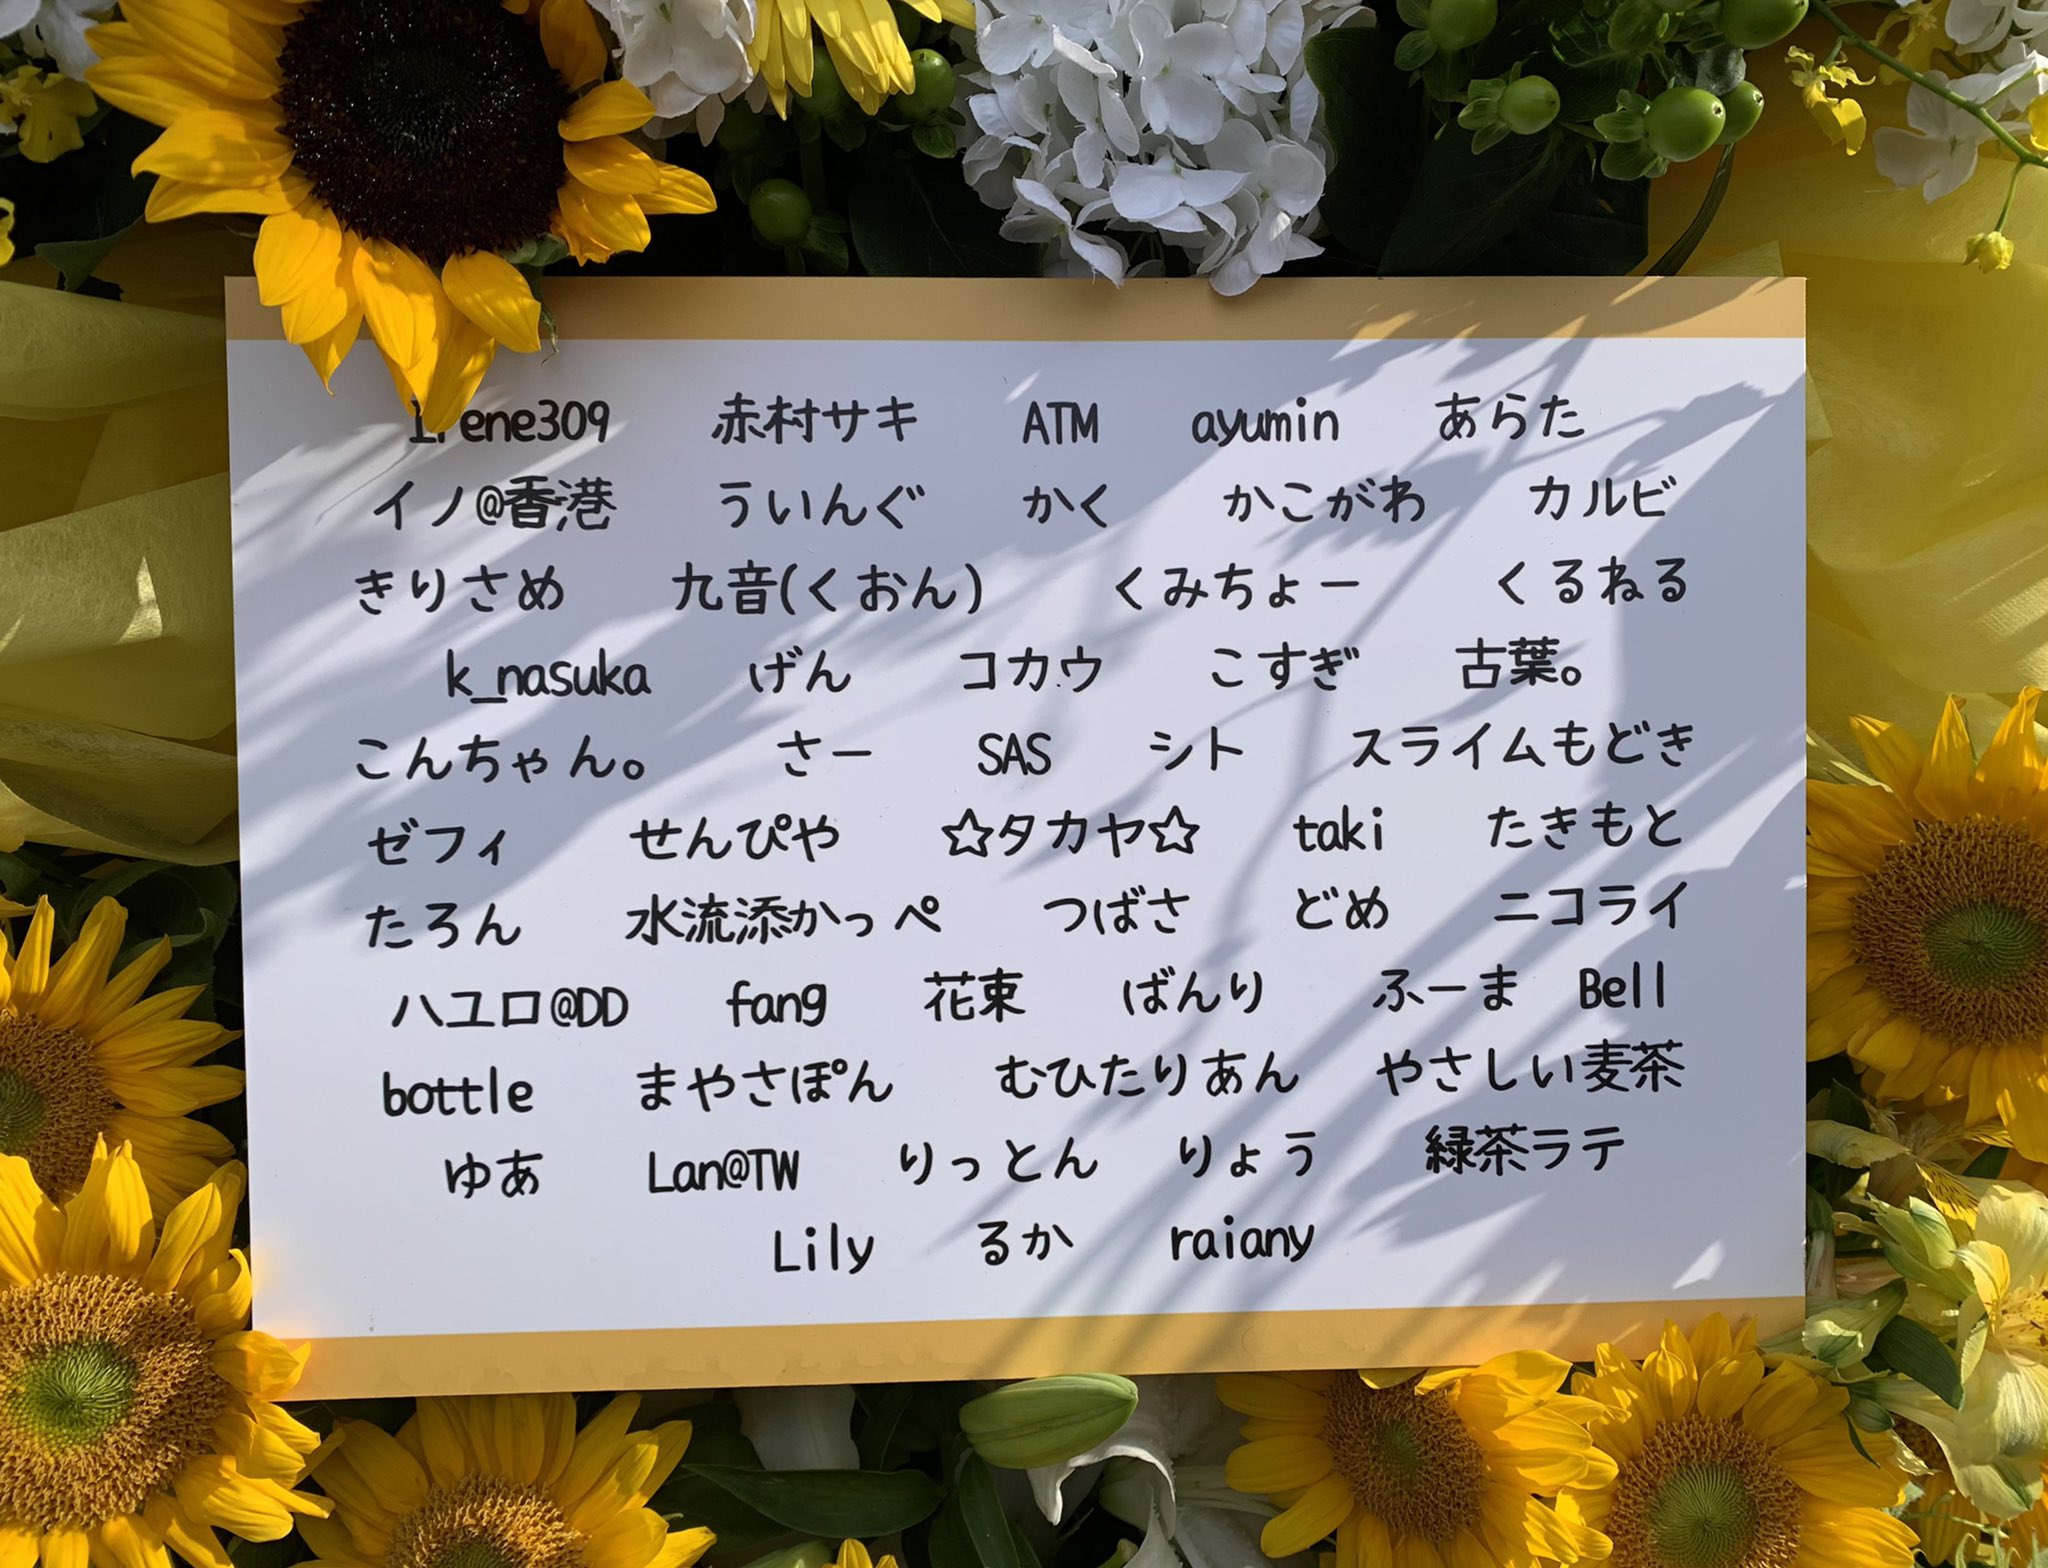 Irene309 赤村サキ ATM ayumin あらた
イノ@香港 ういんぐ かく かこがわ カルビ
きりさめ 九音(くおん) くみちょー くるねる
k_nasuka げん コカウ こすぎ 古葉。
こんちゃん。 さー SAS シト スライムもどき
ゼフィ せんぴや ☆タカヤ☆ taki たきもと
たろん 水流添かっぺ つばさ どめ ニコライ
ハユロ@DD fang 花束 ばんり ふーま Bell
bottle まやさぽん むひたりあん やさしい麦茶
ゆあ Lan@TW りっとん りょう 緑茶ラテ
Lily るか raiany